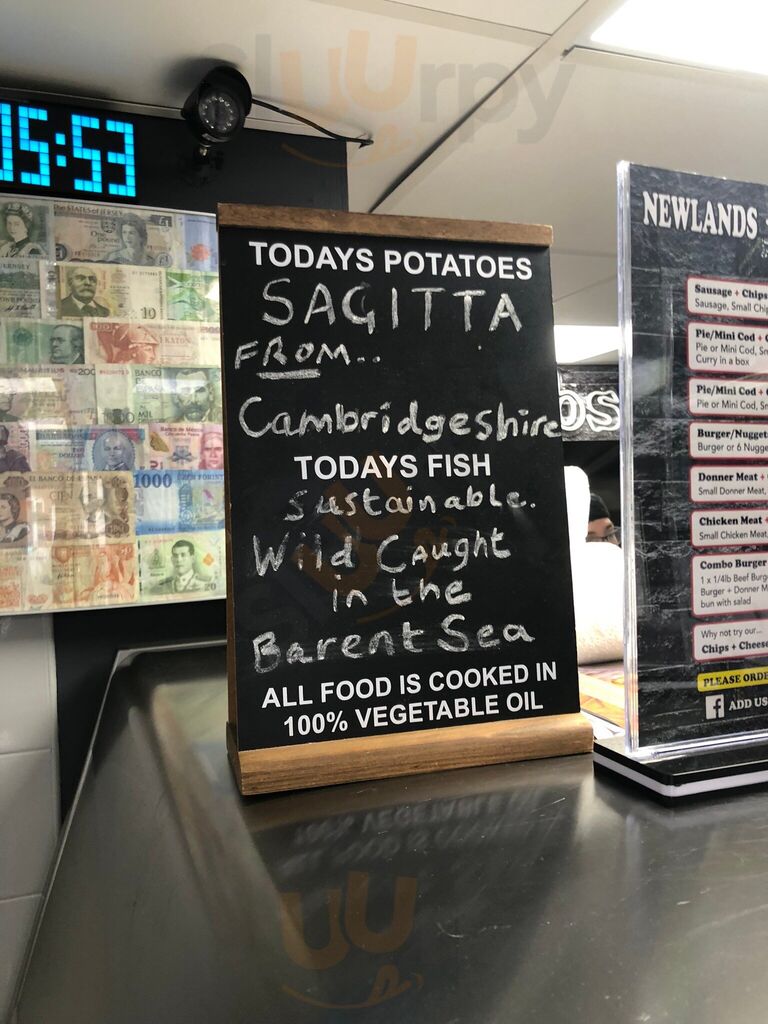 sluurpy
15:53
TODAYS POTATOES
SAGITTA
FROM..
Cambridgeshire
TODAYS FISH
Sustainable.
Wild Caught
in the
Barent Sea
ALL FOOD IS COOKED IN
100% VEGETABLE OIL
NEWLANDS
Sausage + Chips
Sausage, Small Chip
Pie/Mini Cod +
Pie or Mini Cod, Sm
Curry in a box
Pie/Mini Cod +
Pie or Mini Cod, Sm
Burger/Nugget
Burger or 6 Nugge
Donner Meat +
Small Donner Meat,
Chicken Meat +
Small Chicken Meat,
Combo Burger
1 x 1/4lb Beef Burg
Burger + Donner M
bun with salad
Why not try our...
Chips + Cheese
PLEASE ORDE
ADD US
The STATES of JERSEY
One Pound
10
BANCO
MIL
Banco de México
EL BANCO DE ESPAÑA
1000
20